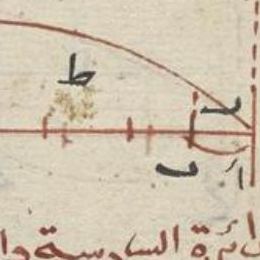 ط
ب
أ
دائرة السادسة وا